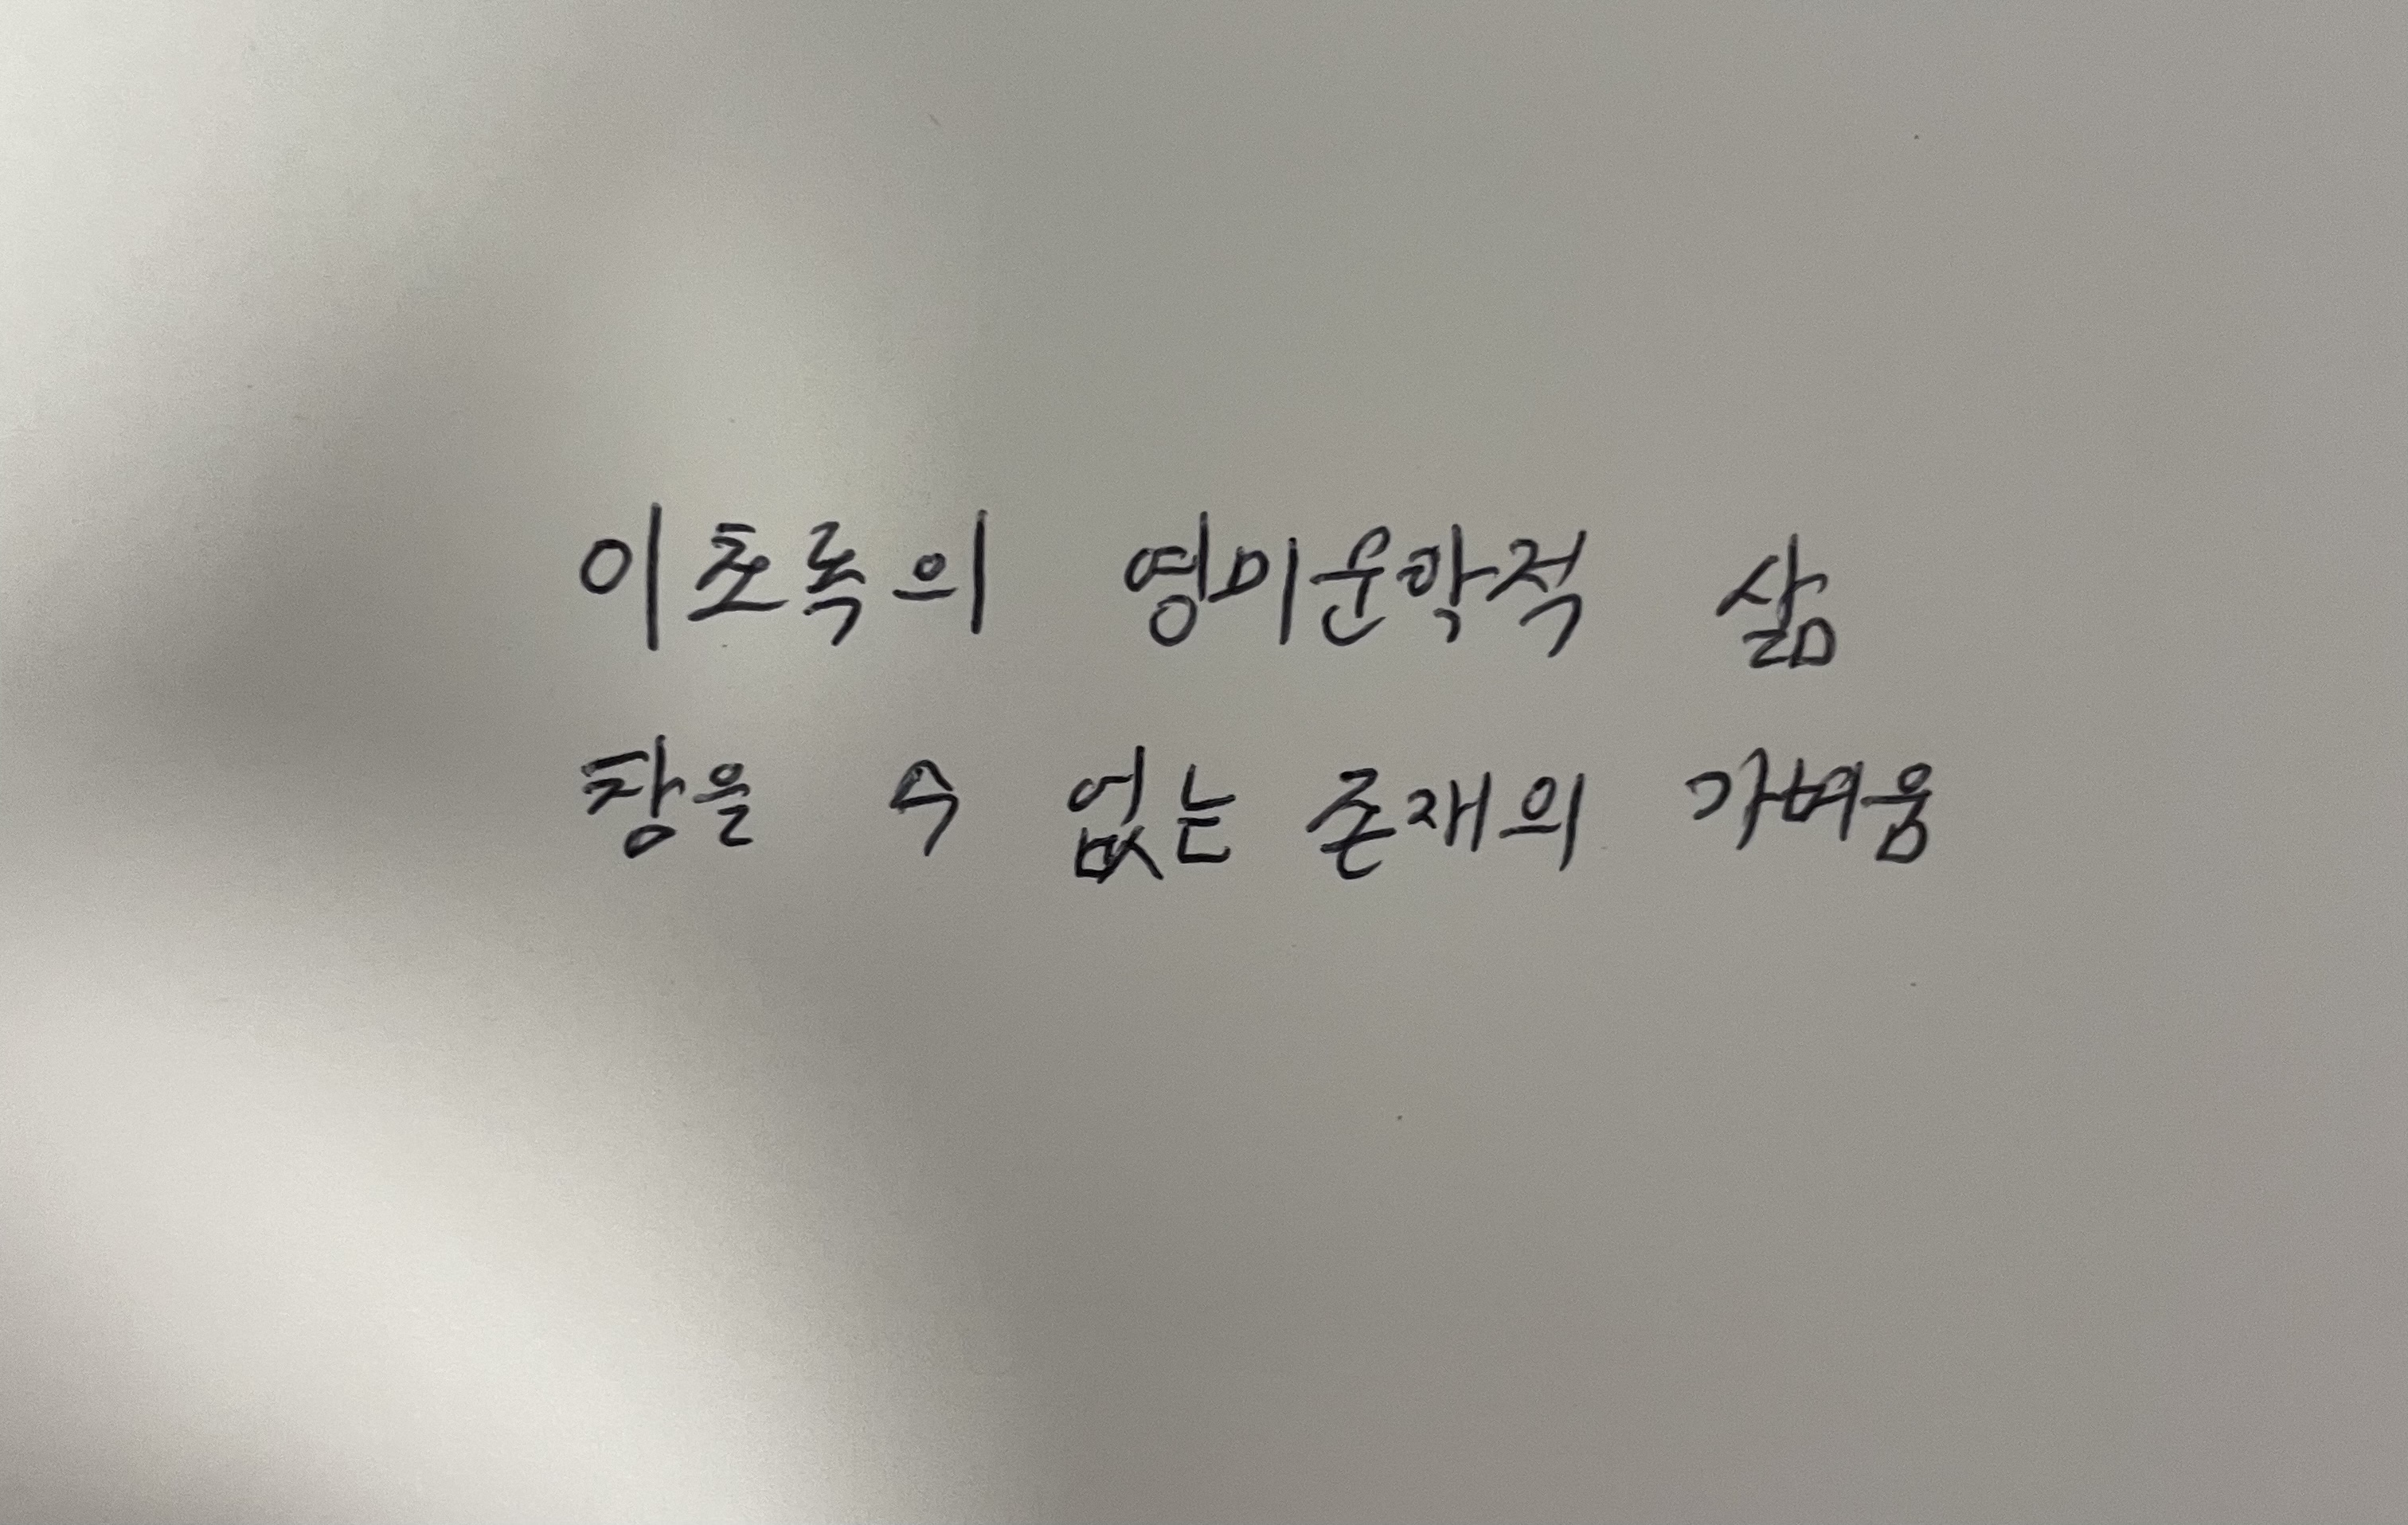 이초록의 영미문학적 삶
참을 수 없는 존재의 가벼움